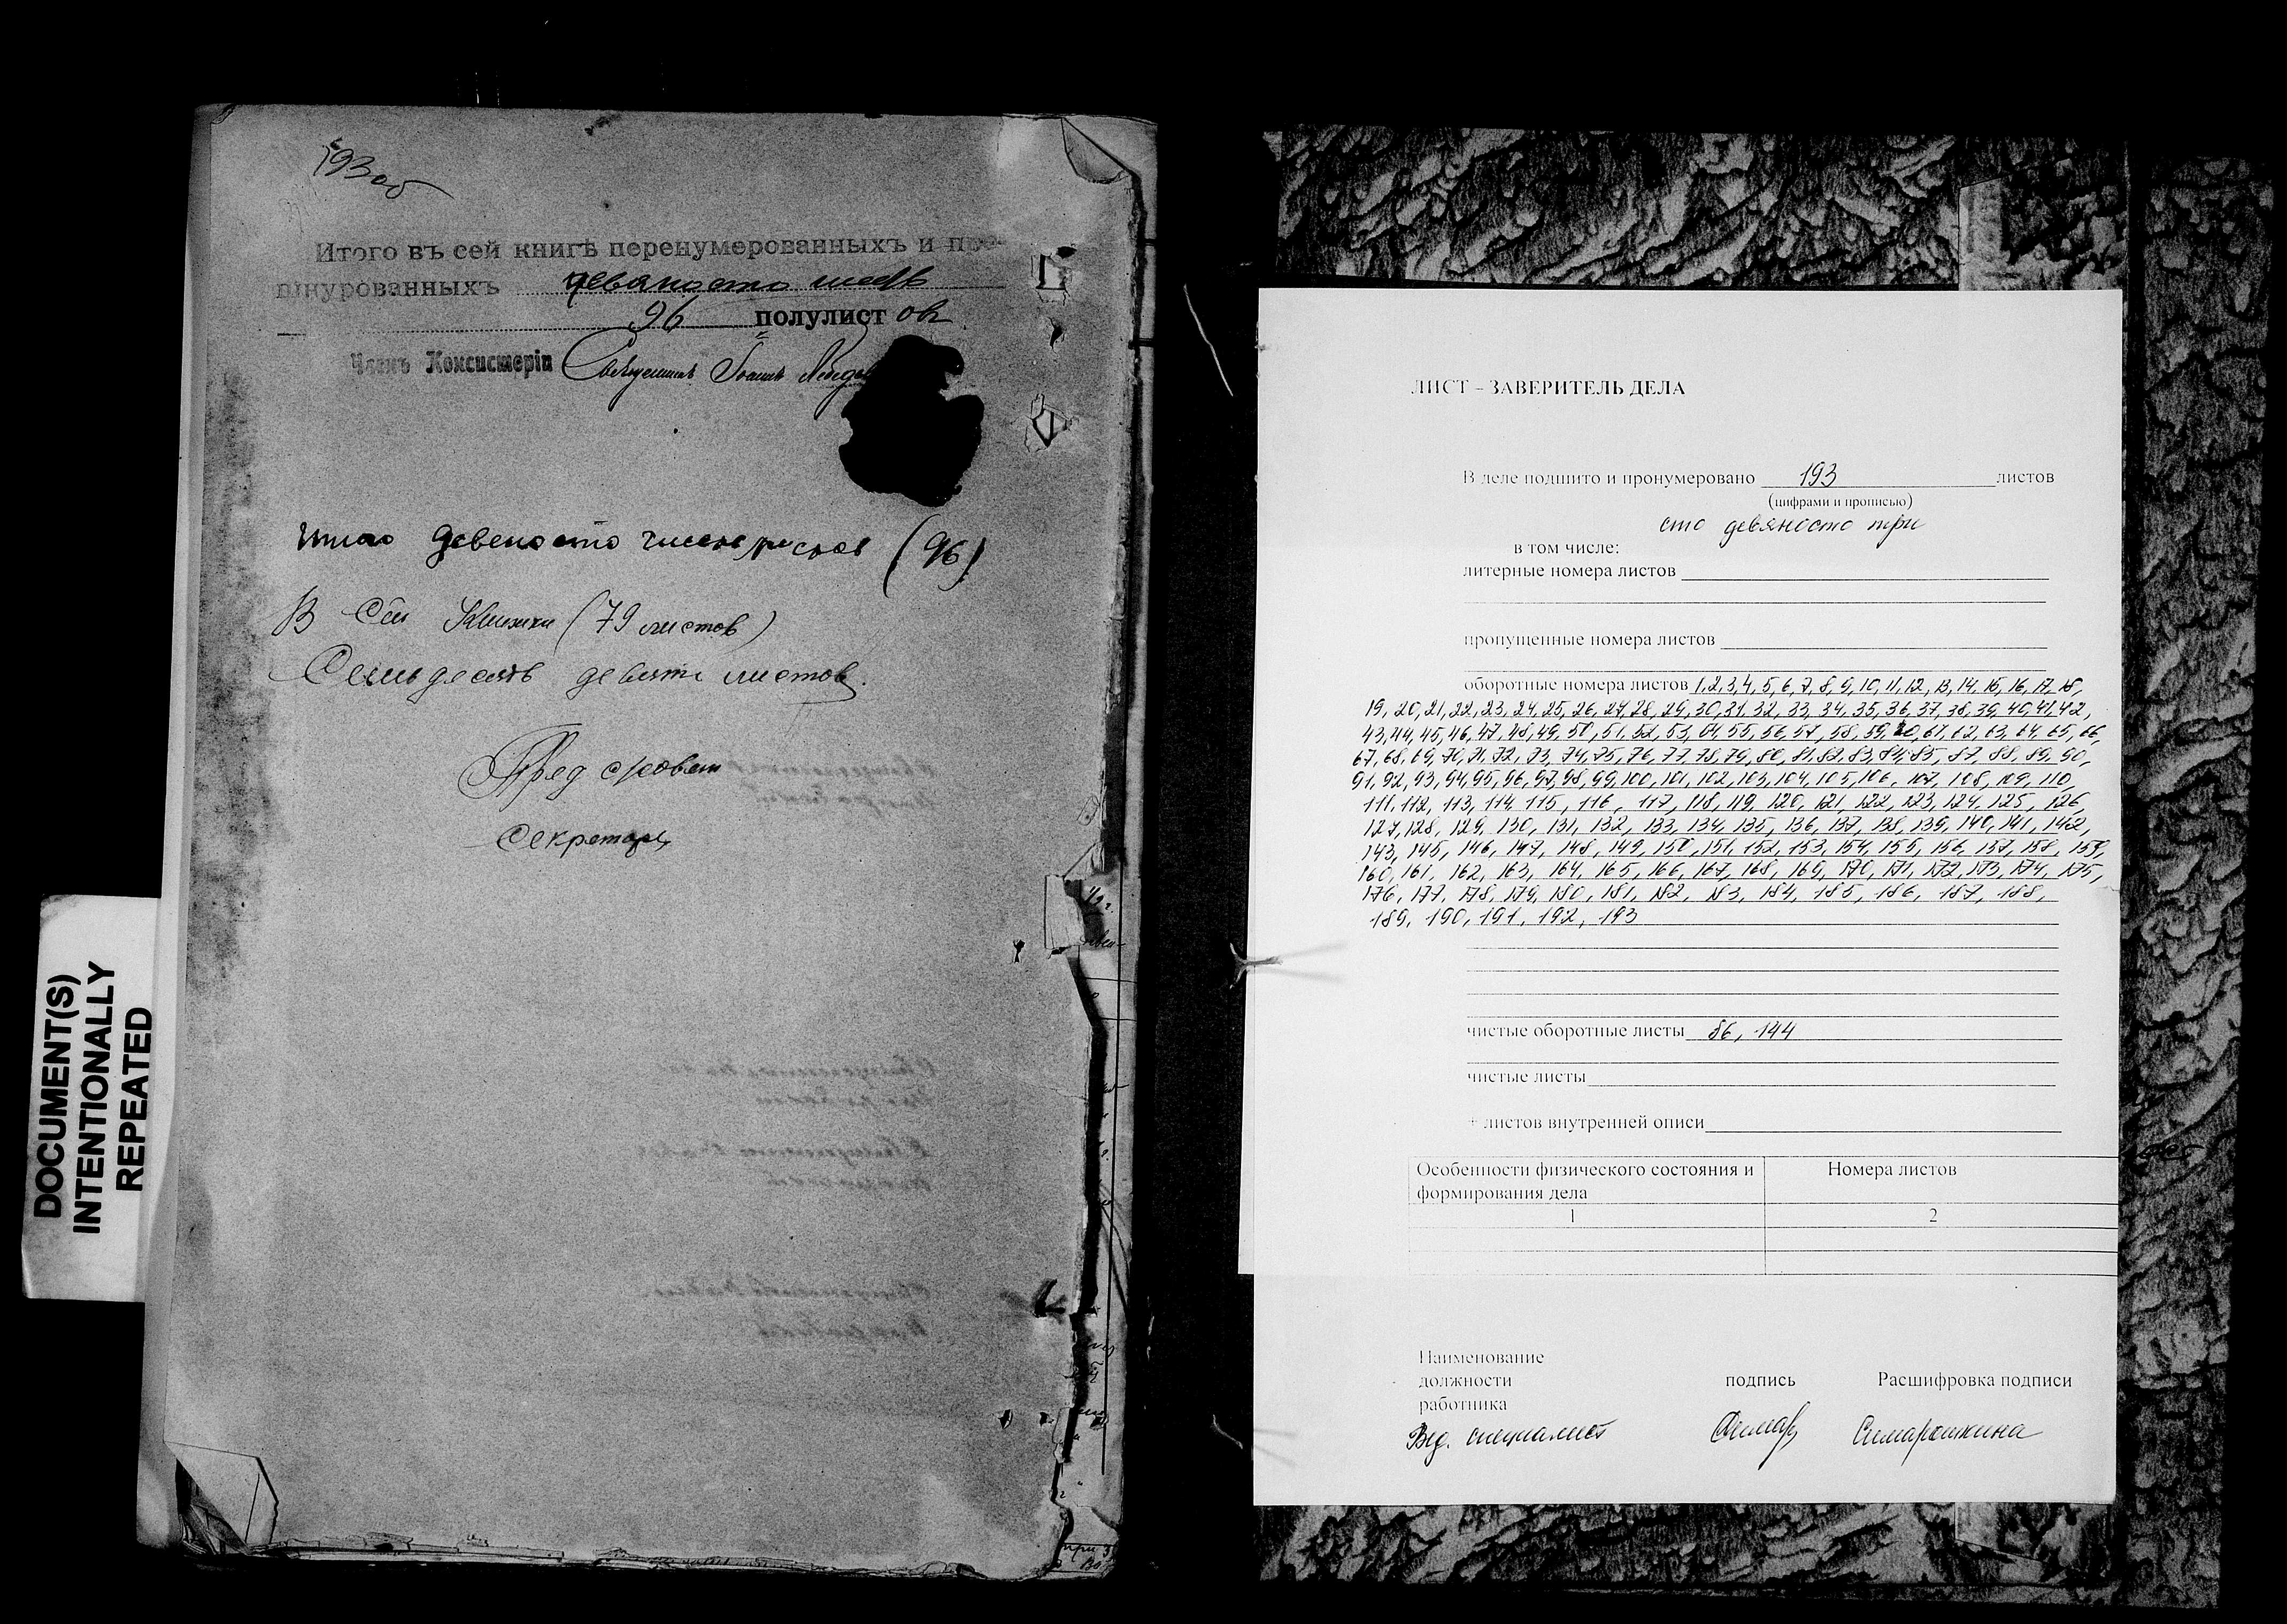 193 об
Итого въ сей книгѣ перенумерованныхъ и про-
шнурованныхъ девяносто шесть
96 полулист овъ
Членъ Консисторіи Священникъ Іоаннъ
Итого девеносто шесть листов (96)
В сей Книжки (79 листов)
Семьдесять девять листов.
Пред
Секретарь
DOCUMENT(S)
INTENTIONALLY
REPEATED
ЛИСТ – ЗАВЕРИТЕЛЬ ДЕЛА
В деле подшито и пронумеровано 193 листов
(цифрами и прописью)
сто девяносто три
в том числе:
литерные номера листов
пропущенные номера листов
оборотные номера листов 1,2,3,4,5,6,7,8,9,10,11,12,13,14,15,16,17,18,
19,20,21,22,23,24,25,26,27,28,29,30,31,32,33,34,35,36,37,38,39,40,41,42,
43,44,45,46,47,48,49,50,51,52,53,54,55,56,57,58,59,60,61,62,63,64,65,66,
67,68,69,70,71,72,73,74,75,76,77,78,79,80,81,82,83,84,85,87,88,89,90,
91,92,93,94,95,96,97,98,99,100,101,102,103,104,105,106,107,108,109,110,
111,112,113,114,115,116,117,118,119,120,121,122,123,124,125,126,
127,128,129,130,131,132,133,134,135,136,137,138,139,140,141,142,
143,145,146,147,148,149,150,151,152,153,154,155,156,157,158,159,
160,161,162,163,164,165,166,167,168,169,170,171,172,173,174,175,
176,177,178,179,180,181,182,183,184,185,186,187,188,
189,190,191,192,193
чистые оборотные листы 86, 144
чистые листы
+ листов внутренней описи
Особенности физического состояния и
формирования дела
Номера листов
1 2
Наименование
должности
работника
подпись Расшифровка подписи
Вед. специалист Симарошкина